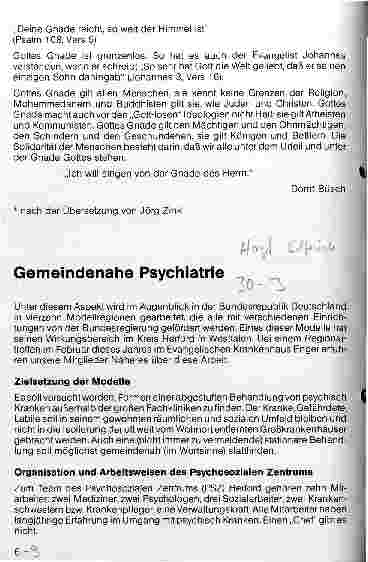 „Deine Gnade reicht, so weit der Himmel ist"
(Psalm 108, Vers 5)
Gottes Gnade ist grenzenlos. So hat es auch der Evangelist Johannes
verstanden, wenn er schreibt: „So sehr hat Gott die Welt geliebt, daß er seinen
einzigen Sohn dahingab" (Johannes 3, Vers 16).
Gottes Gnade gilt allen Menschen, sie kennt keine Grenzen der Religion,
Mohammedanern und Buddhisten gilt sie, wie Juden und Christen. Gottes
Gnade macht auch vor den „Gottlosen" Ideologien nicht Halt, sie gilt Atheisten
und Kommunisten. Gottes Gnade gilt den Mächtigen und den Ohnmächtigen,
den Schindern und den Geschundenen, sie gilt Königen und Bettlern. Die
Solidarität der Menschen besteht darin, daß wir alle unter dem Urteil und unter
der Gnade Gottes stehen.
„Ich will singen von der Gnade des Herrn."
Dorrit Büsch
* nach der Übersetzung von Jörg Zink
30-3
Gemeindenahe Psychiatrie
Unter diesem Aspekt wird im Augenblick in der Bundesrepublik Deutschland
in vierzehn „Modellregionen" gearbeitet, die alle mit verschiedenen Einrich-
tungen von der Bundesregierung gefördert werden. Eines dieser Modelle hat
seinen Wirkungsbereich im Kreis Herford in Westfalen. Bei einem Regional-
treffen im Februar dieses Jahres im Evangelischen Krankenhaus Enger erfuh-
ren unsere Mitglieder Näheres über diese Arbeit.
Zielsetzung der Modelle
Es soll versucht werden, Formen einer abgestuften Behandlung von psychisch
Kranken außerhalb der großen Fachkliniken zu finden. Der Kranke, Gefährdete,
Labile soll in seinem gewohnten räumlichen und sozialen Umfeld bleiben und
nicht in die Isolierung der oft weit vom Wohnort entfernten Großkrankenhäuser
gebracht werden. Auch eine (nicht immer zu vermeidende) stationäre Behand-
lung soll möglichst gemeindenah (im Wortsinne) stattfinden.
Organisation und Arbeitsweisen des Psychosozialen Zentrums
Zum Team des Psychosozialen Zentrums (PSZ) Herford gehören zehn Mit-
arbeiter: zwei Mediziner, zwei Psychologen, drei Sozialarbeiter, zwei Kranken-
schwestern bzw. Krankenpfleger, eine Verwaltungskraft. Alle Mitarbeiter haben
langjährige Erfahrung im Umgang mit psychisch Kranken. Einen „Chef" gibt es
nicht.
6-9